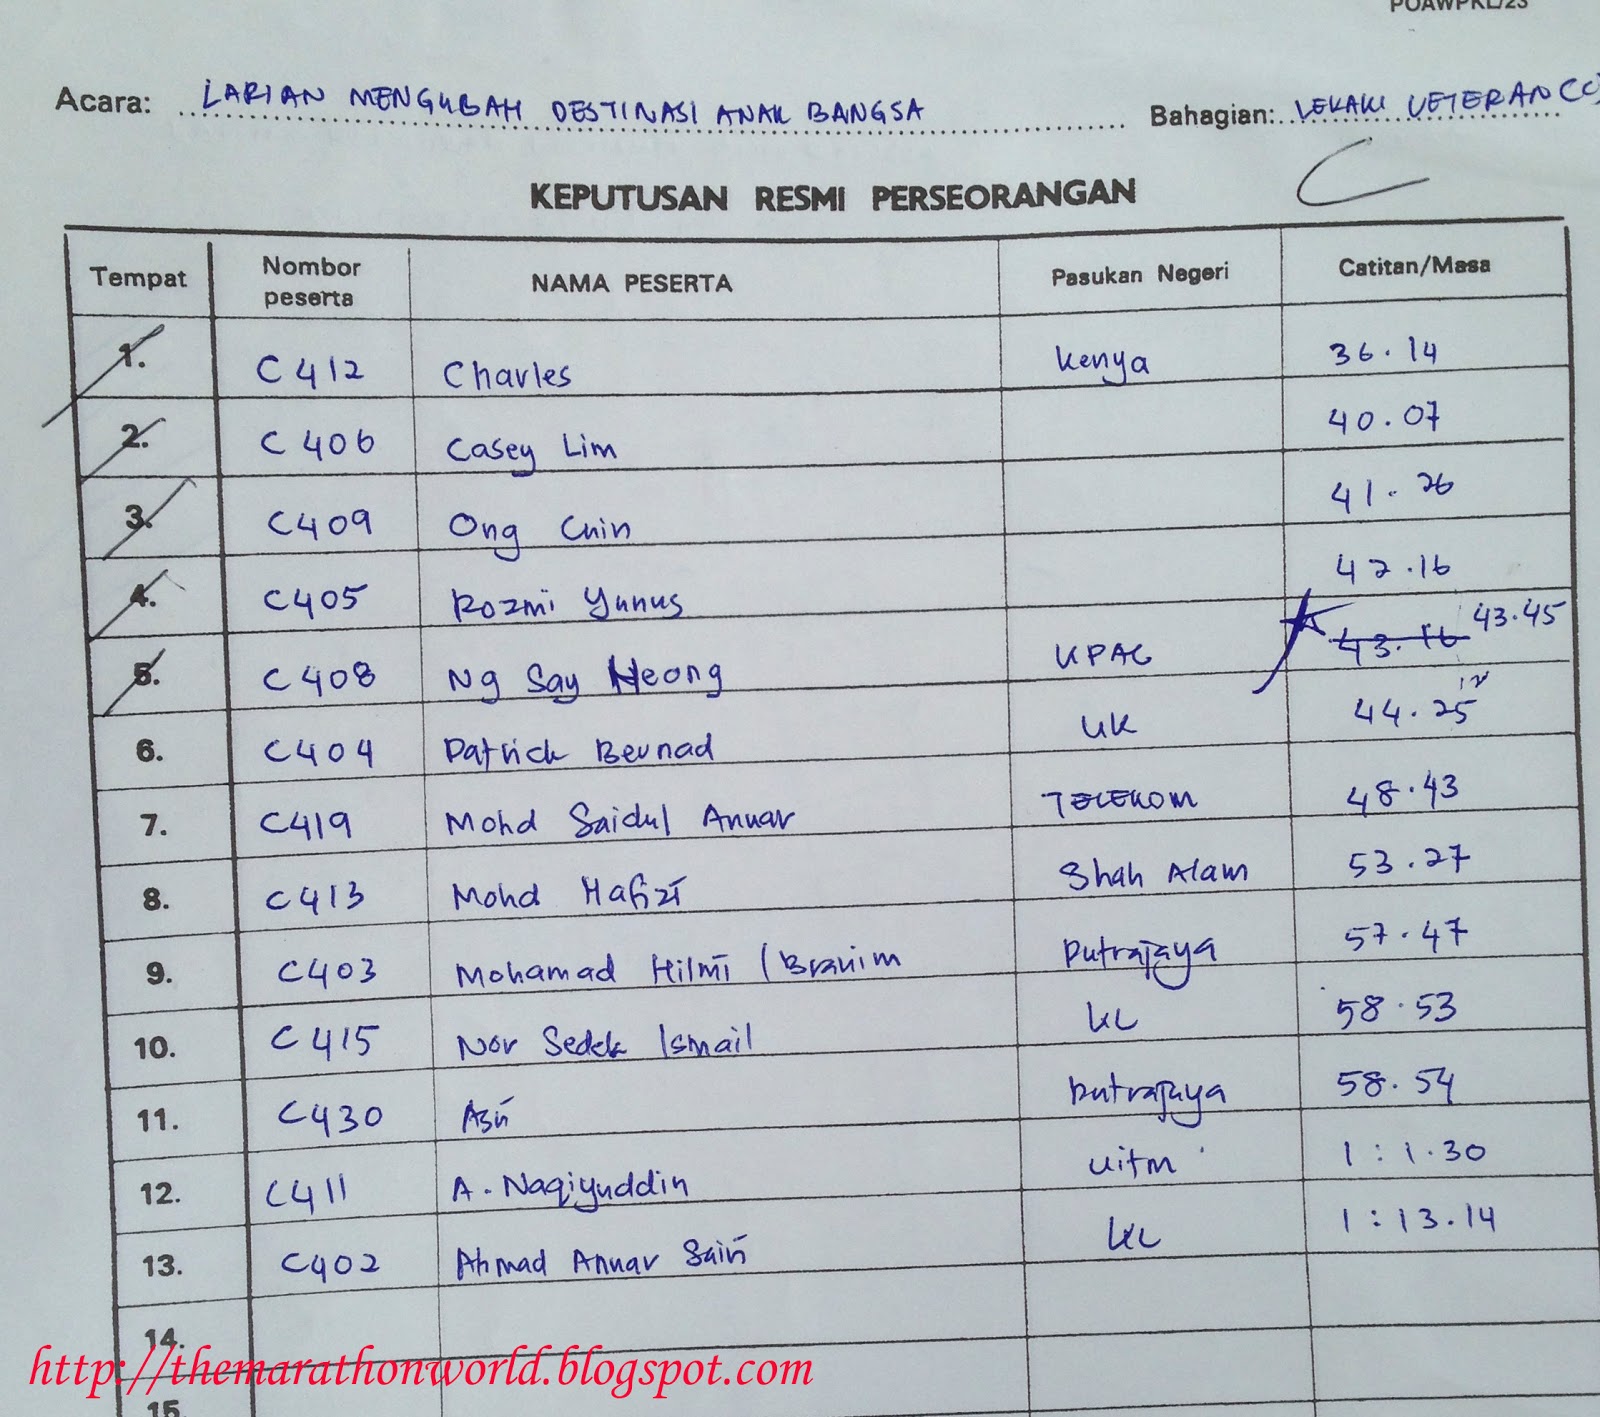 POAWPKL/23
Acara: LARIAN MENGUBAH DESTINASI ANAK BANGSA Bahagian: LELAKI VETERAN (C)
C
KEPUTUSAN RESMI PERSEORANGAN
Tempat Nombor peserta NAMA PESERTA Pasukan Negeri Catitan/Masa
1. C412 Charles Kenya 36.14
2. C406 Casey Lim 40.07
3. C409 Ong Chin 41.26
4. C405 Rozmi Yunus 42.16
5. C408 Ng Say Heong KPAC 43.16 43.45
6. C404 Patrick Bernad UK 44.25
7. C419 Mohd Saidul Anuar TELEKOM 48.43
8. C413 Mohd Hafizi Shah Alam 53.27
9. C403 Mohamad Hilmi Ibrahim Putrajaya 57.47
10. C415 Nor Sedek Ismail KL 58.53
11. C430 Azri Putrajaya 58.54
12. C411 A. Naqiyuddin uitm 1:1.30
13. C402 Ahmad Anuar Sairi KL 1:13.14
14.
http://themarathonworld.blogspot.com
15.